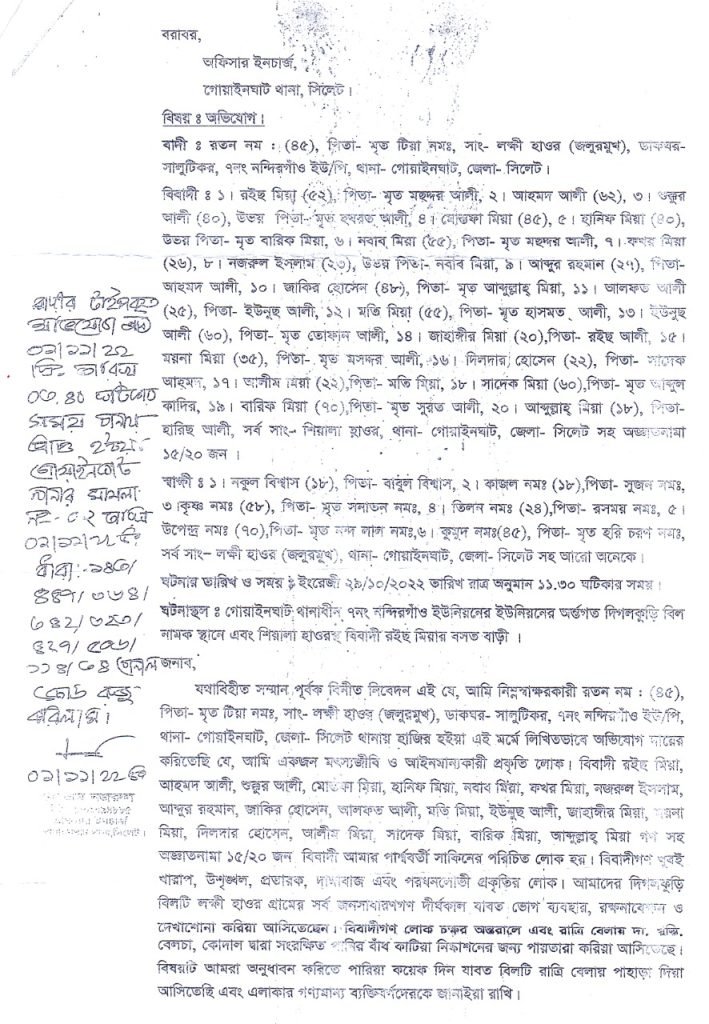 বরাবর,
অফিসার ইনচার্জ,
গোয়াইনঘাট থানা, সিলেট।
বিষয় ঃ অভিযোগ।
বাদী ঃ রতন নম : (৪৫), পিতা- মৃত টিয়া নমঃ, সাং- লক্ষী হাওর (জলুরমুখ), ডাকঘর-
সালুটিকর, ৭নং নন্দিরগাঁও ইউ/পি, থানা- গোয়াইনঘাট, জেলা- সিলেট।
বিবাদী ঃ ১। রইছ মিয়া (৫২), পিতা- মৃত মছদ্দর আলী, ২। আহমদ আলী (৬২), ৩। শুক্কুর
আলী (৪০), উভয় পিতা- মৃত হযরত আলী, ৪। মোস্তফা মিয়া (৪৫), ৫। হানিফ মিয়া (৪০),
উভয় পিতা- মৃত বারিক মিয়া, ৬। নবাব মিয়া (৫৫), পিতা- মৃত মছদ্দর আলী, ৭। ফখর মিয়া
(২৬), ৮। নজরুল ইসলাম (২৩), উভয় পিতা- নবাব মিয়া, ৯। আব্দুর রহমান (২৭), পিতা-
আহমদ আলী, ১০। জাকির হোসেন (৪৮), পিতা- মৃত আব্দুল্লাহ্ মিয়া, ১১। আলফত আলী
(২৫), পিতা- ইউনুছ আলী, ১২। মতি মিয়া (৫৫), পিতা- মৃত হাসমত আলী, ১৩। ইউনুছ
আলী (৬০), পিতা- মৃত তোফান আলী, ১৪। জাহাঙ্গীর মিয়া (২০),পিতা- রইছ আলী, ১৫।
ময়না মিয়া (৩৫), পিতা- মৃত মসদ্দর আলী, ১৬। দিলদার হোসেন (২২), পিতা- সাদেক
আহমদ, ১৭। আলীম মিয়া (২২),পিতা- মতি মিয়া, ১৮। সাদেক মিয়া (৬০),পিতা- মৃত আব্দুল
কাদির, ১৯। বারিক মিয়া (৭০),পিতা- মৃত সুরত আলী, ২০। আব্দুল্লাহ্ মিয়া (১৮), পিতা-
হারিছ আলী, সর্ব সাং- শিয়ালা হাওর, থানা- গোয়াইনঘাট, জেলা- সিলেট সহ অজ্ঞাতনামা
১৫/২০ জন ।
স্বাক্ষী ঃ ১। নকুল বিশ্বাস (১৮), পিতা- বাবুল বিশ্বাস, ২। কাজল নমঃ (১৮),পিতা- সুজন নমঃ,
৩।কৃষ্ণ নমঃ (৫৮), পিতা- মৃত সনাতন নমঃ, ৪। তিলন নমঃ (২৪),পিতা- রসময় নমঃ, ৫।
উপেন্দ্র নমঃ (৭০),পিতা- মৃত নন্দ লাল নমঃ,৬। কুমুদ নমঃ(৪৫), পিতা- মৃত হরি চরণ নমঃ,
সর্ব সাং– লক্ষী হাওর (জলুরমুখ), থানা- গোয়াইনঘাট, জেলা- সিলেট সহ আরো অনেকে।
ঘটনার তারিখ ও সময় ঃ ইংরেজী ২৯/১০/২০২২ তারিখ রাত্র অনুমান ১১.৩০ ঘটিকার সময়।
ঘটনাস্থল ঃ গোয়াইনঘাট থানাধীন ৭নং নন্দিরগাঁও ইউনিয়নের ইউনিয়নের অর্ন্তগত দিগলকুড়ি বিল
নামক স্থানে এবং শিয়ালা হাওরস্থ বিবাদী রইছ মিয়ার বসত বাড়ী ।
জনাব,
যথাবিহীত সম্মান পূর্বক বিনীত নিবেদন এই যে, আমি নিম্নস্বাক্ষরকারী রতন নম : (৪৫),
পিতা- মৃত টিয়া নমঃ, সাং- লক্ষী হাওর (জলুরমুখ), ডাকঘর- সালুটিকর, ৭নং নন্দিরগাঁও ইউ/পি,
থানা- গোয়াইনঘাট, জেলা- সিলেট থানায় হাজির হইয়া এই মর্মে লিখিতভাবে অভিযোগ দায়ের
করিতেছি যে, আমি একজন মৎস্যজীবি ও আইনমান্যকারী প্রকৃতি লোক। বিবাদী রইছ মিয়া,
আহমদ আলী, শুক্কুর আলী, মোস্তফা মিয়া, হানিফ মিয়া, নবাব মিয়া, ফখর মিয়া, নজরুল ইসলাম,
আব্দুর রহমান, জাকির হোসেন, আলফত আলী, মতি মিয়া, ইউনুছ আলী, জাহাঙ্গীর মিয়া, ময়না
মিয়া, দিলদার হোসেন, আলীম মিয়া, সাদেক মিয়া, বারিক মিয়া, আব্দুল্লাহ্ মিয়া গণ সহ
অজ্ঞাতনামা ১৫/২০ জন বিবাদী আমার পার্শ্ববর্তী সাকিনের পরিচিত লোক হয়। বিবাদীগণ খুবই
খারাপ, উশৃঙ্খল, প্রতারক, দাঙ্গাবাজ এবং পরধনলোভী প্রকৃতির লোক। আমাদের দিগলকুড়ি
বিলটি লক্ষী হাওর গ্রামের সর্ব জনসাধারণগণ দীর্ঘকাল যাবত ভোগ ব্যবহার, রক্ষনাবেক্ষন ও
দেখাশোনা করিয়া আসিতেছেন। বিবাদীগণ লোক চক্ষুর অন্তরালে এবং রাত্রি বেলায় দা,
বেলচা, কোদাল দ্বারা সংরক্ষিত পানির বাঁধ কাটিয়া নিষ্কাশনের জন্য পায়তারা করিয়া আসিতেছে।
বিষয়টি আমরা অনুধাবন করিতে পারিয়া কয়েক দিন যাবত বিলটি রাত্রি বেলায় পাহাড়া দিয়া
আসিতেছি এবং এলাকার গণ্যমান্য ব্যক্তিবর্গদেরকে জানাইয়া রাখি।
বাদীর টাইপকৃত
অভিযোগ অদ্য
০১/১১/২২
খ্রিঃ তারিখ
ঘটিকার
সময় থানায়
প্রাপ্ত হইয়া
গোয়াইনঘাট
থানার মামলা
নং- ০২ তারিখ
০১/১১/২২ খ্রিঃ
ধারা:-১৪৩/
৪৪৭/
৩৪২/
৪২৭/ ৫০৬/
১১৪/৩৪ পেনাল
কোড রুজু
করিলাম।
০১/১১/২২ খ্রিঃ